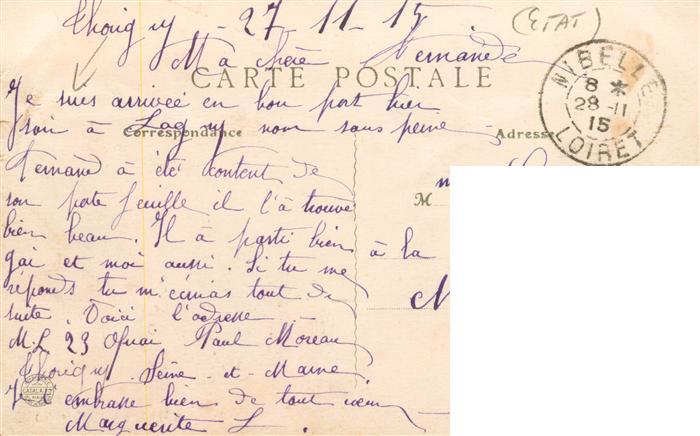 Thorigny - 27-11-15 (ETAT)
Ma chère Fernande
CARTE POSTALE
Je suis arrivée en bon port hier
soir à Lagny non sans peine
Correspondance
Adresse
Fernand à été content de
son porte feuille il l'à trouvé
bien beau. Il à parti bien
gai et moi aussi. Si tu me
réponds tu m'écriras tout de
suite. Voici l'adresse
M.L 23 Quai Paul Moreau
Thorigny Seine-et-Marne
Je t'embrasse bien de tout cœur
Marguerite L.
M
à la
M
NIBELLE
8 *
28-11
15
LOIRET